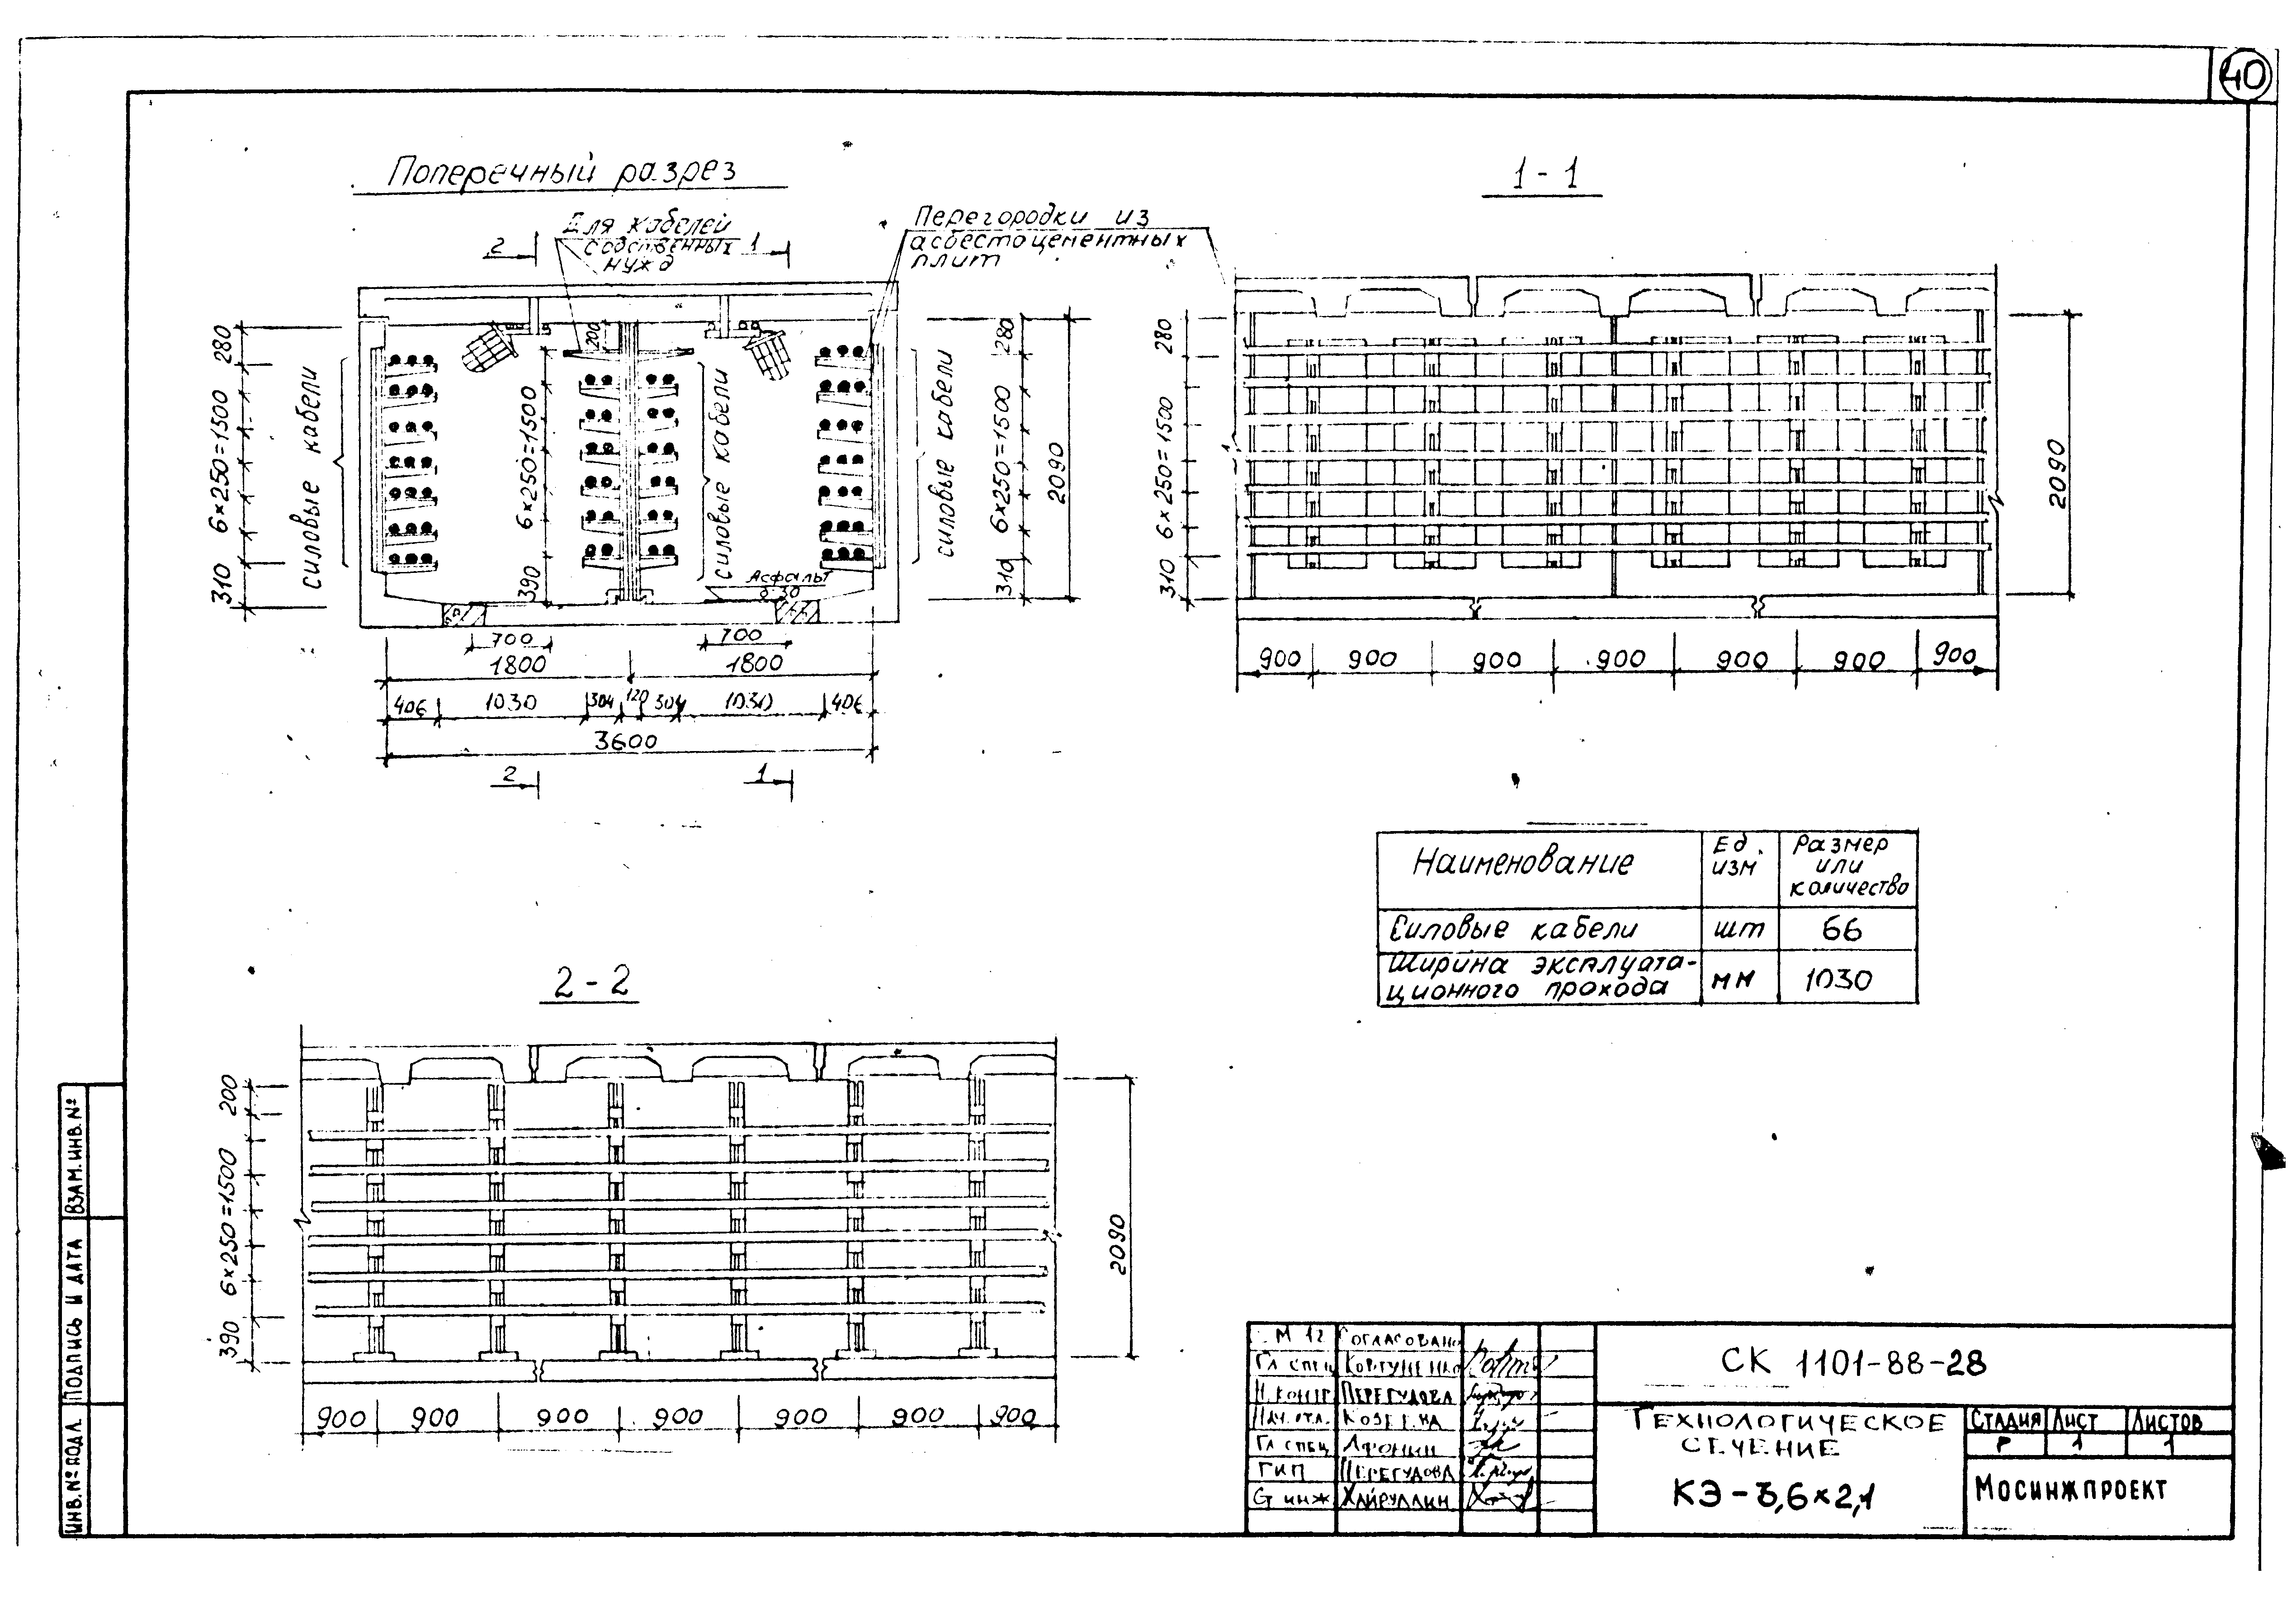 40
Поперечный разрез
1-1
Для кабелей
собственных
нужд
2
1
Перегородки из
асбестоцементных
плит
280
6×250=1500
310
силовые кабели
200
6×250=1500
390
силовые кабели
Асфальт
δ=30
силовые кабели
280
6×250=1500
310
2090
700
700
1800
1800
406
1030
304
120
304
1030
406
3600
2
1
280
6×250=1500
310
2090
900 900 900 900 900 900 900
Наименование
Ед. изм
Размер или количество
Силовые кабели шт 66
Ширина эксплуата-
ционного прохода мм 1030
2-2
200
6×250=1500
390
2090
900 900 900 900 900 900 900
ИНВ.№ПОДЛ. ПОДПИСЬ И ДАТА ВЗАМ.ИНВ.№
М 12 Согласовано
Гл спец
Н.контр Перегудова
Нач.отд.
Гл спец Афонин
ГИП Перегудова
Ст инж Хайруллин
СК 1101-88-28
Технологическое
сечение
КЭ-3,6×2,1
Стадия Лист Листов
Р 1 1
Мосинжпроект